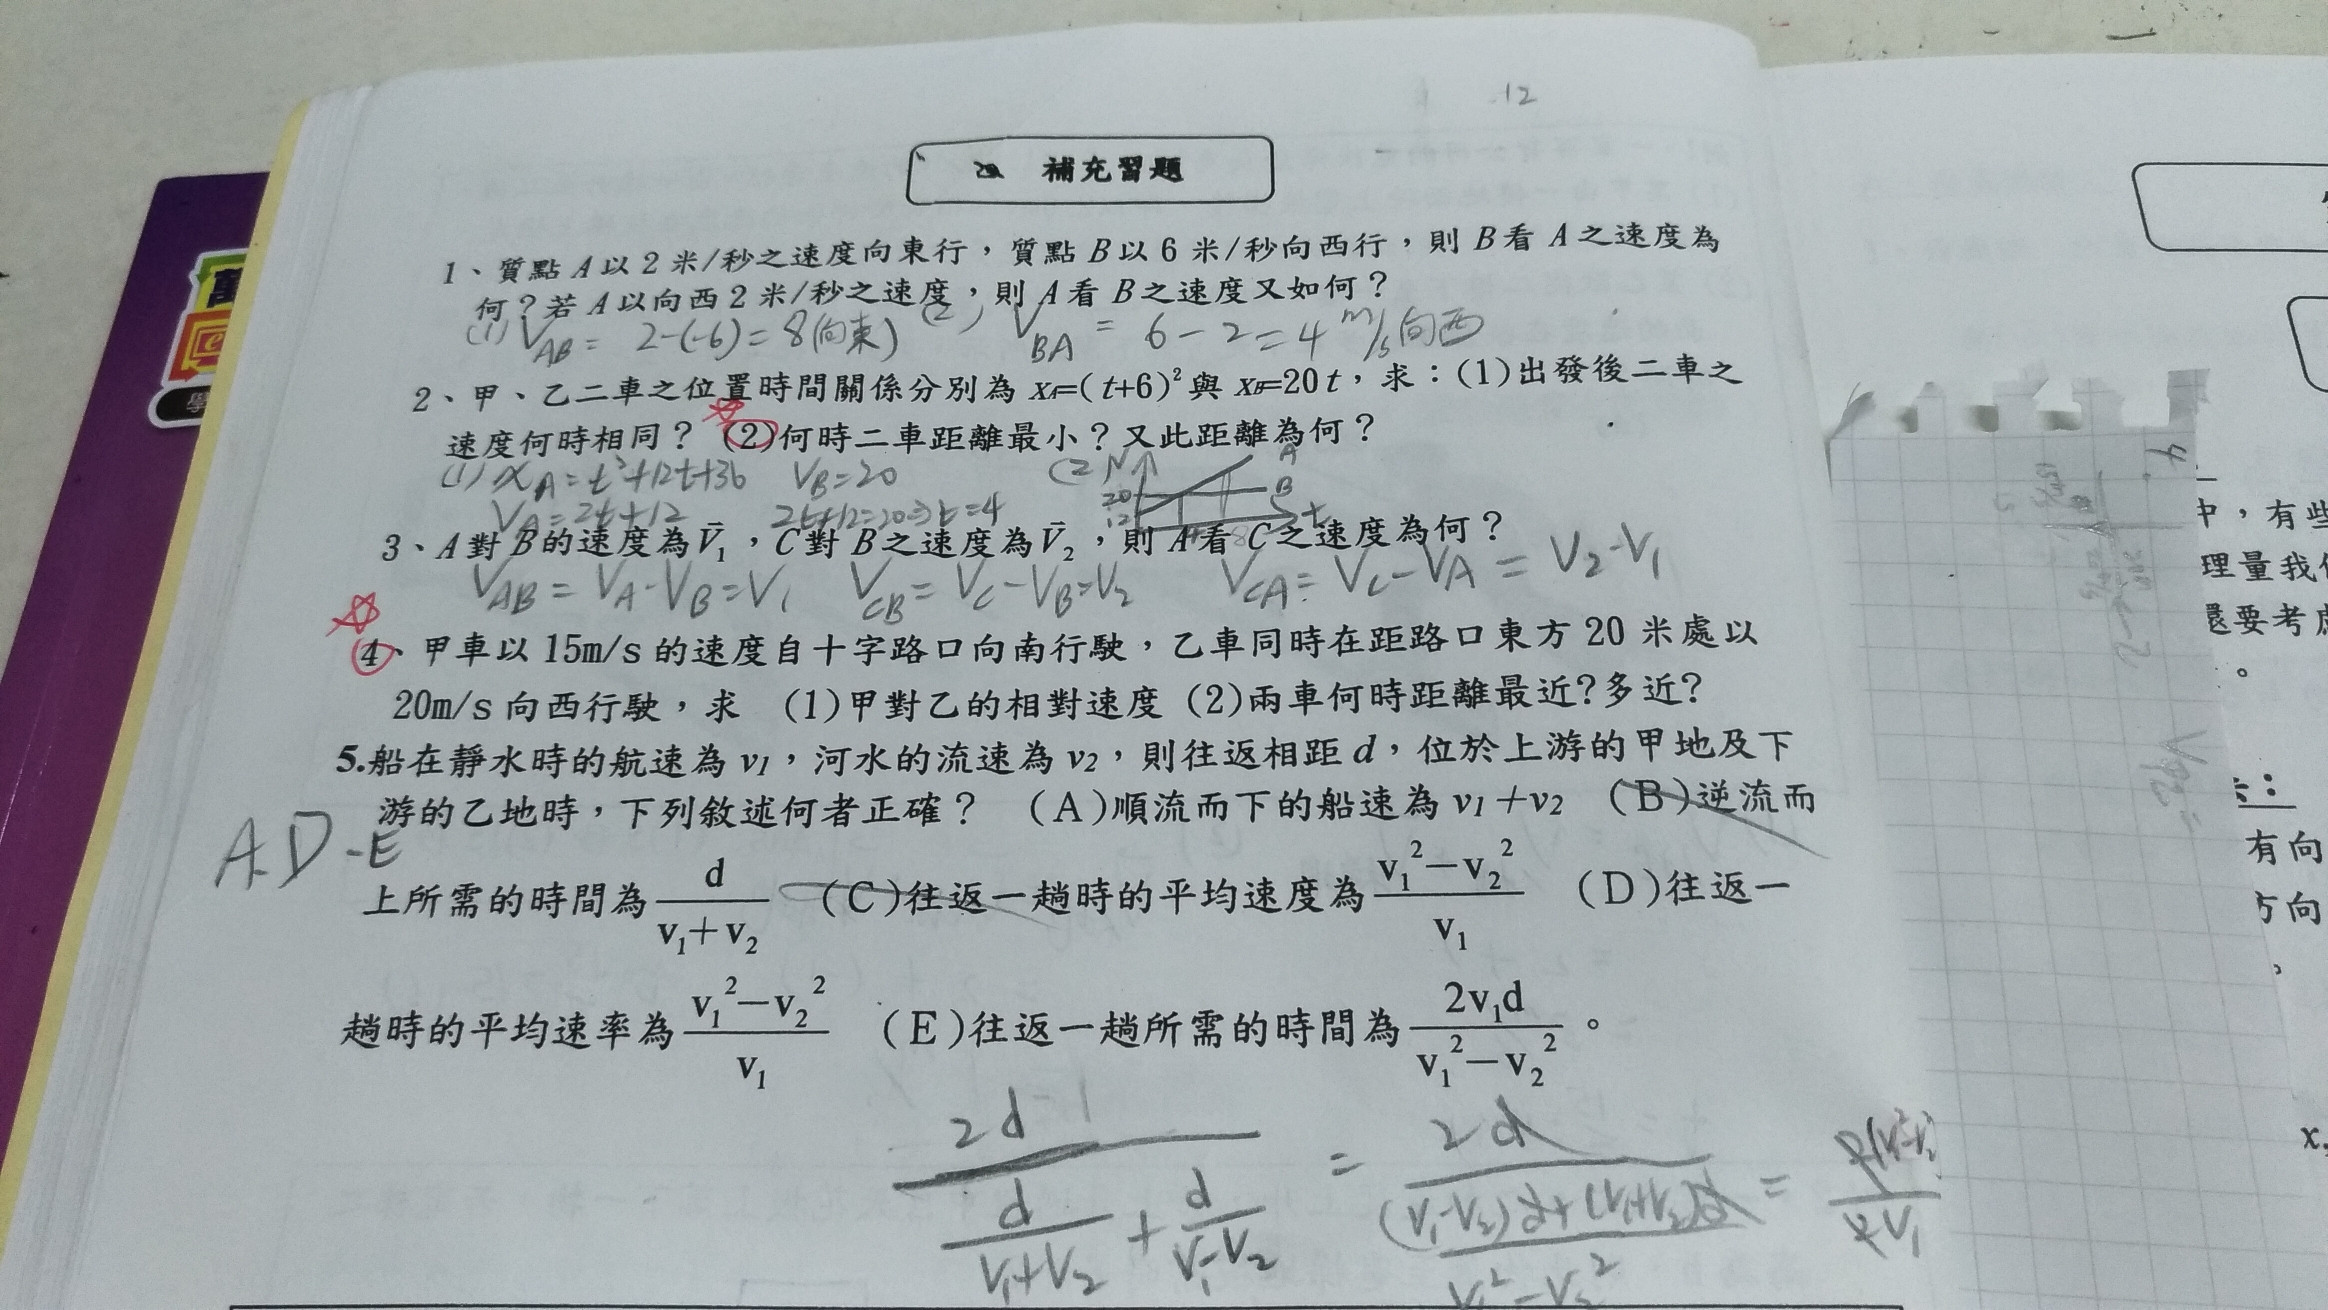 12
補充習題
1、質點 A 以 2 米/秒之速度向東行，質點 B 以 6 米/秒向西行，則 B 看 A 之速度為
何？若 A 以向西 2 米/秒之速度，則 A 看 B 之速度又如何？
(1) V_AB = 2-(-6) = 8 (向東) (2) V_BA = 6 - 2 = 4 m/s 向西
2、甲、乙二車之位置時間關係分別為 x_A=(t+6)² 與 x_B=20t，求：(1)出發後二車之
速度何時相同？ (2)何時二車距離最小？又此距離為何？
(1) x_A = t²+12t+36 V_B = 20 (2) A
V_A = 2t+12 2t+12=20 ⇒ t=4 20 B
12 t
3、A 對 B 的速度為 V⃗₁，C 對 B 之速度為 V⃗₂，則 A 看 C 之速度為何？
V_AB = V_A - V_B = V₁ V_CB = V_C - V_B = V₂ V_CA = V_C - V_A = V₂ - V₁
4、甲車以 15m/s 的速度自十字路口向南行駛，乙車同時在距路口東方 20 米處以
20m/s 向西行駛，求 (1)甲對乙的相對速度 (2)兩車何時距離最近?多近?
5.船在靜水時的航速為 v₁，河水的流速為 v₂，則往返相距 d，位於上游的甲地及下
游的乙地時，下列敘述何者正確？ (A)順流而下的船速為 v₁+v₂ (B)逆流而
A.D.E
上所需的時間為 d/(v₁+v₂) (C)往返一趟時的平均速度為 (v₁²−v₂²)/v₁ (D)往返一
趟時的平均速率為 (v₁²−v₂²)/v₁ (E)往返一趟所需的時間為 2v₁d/(v₁²−v₂²)。
2d/(d/(V₁+V₂) + d/(V₁-V₂)) = 2d/(((V₁-V₂)d+(V₁+V₂)d)/(V₁²-V₂²)) = 2(V₁²-V₂²)/2V₁
中，有些
理量我
還要考慮
。
有向
方向
x